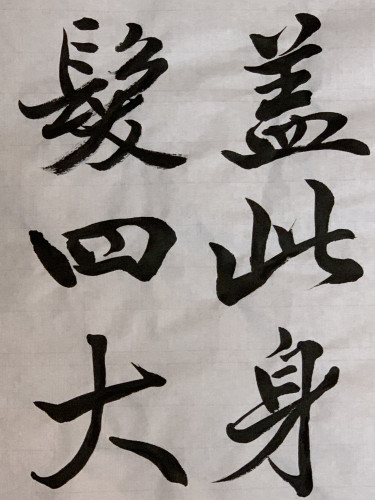 盖此身
髮四大